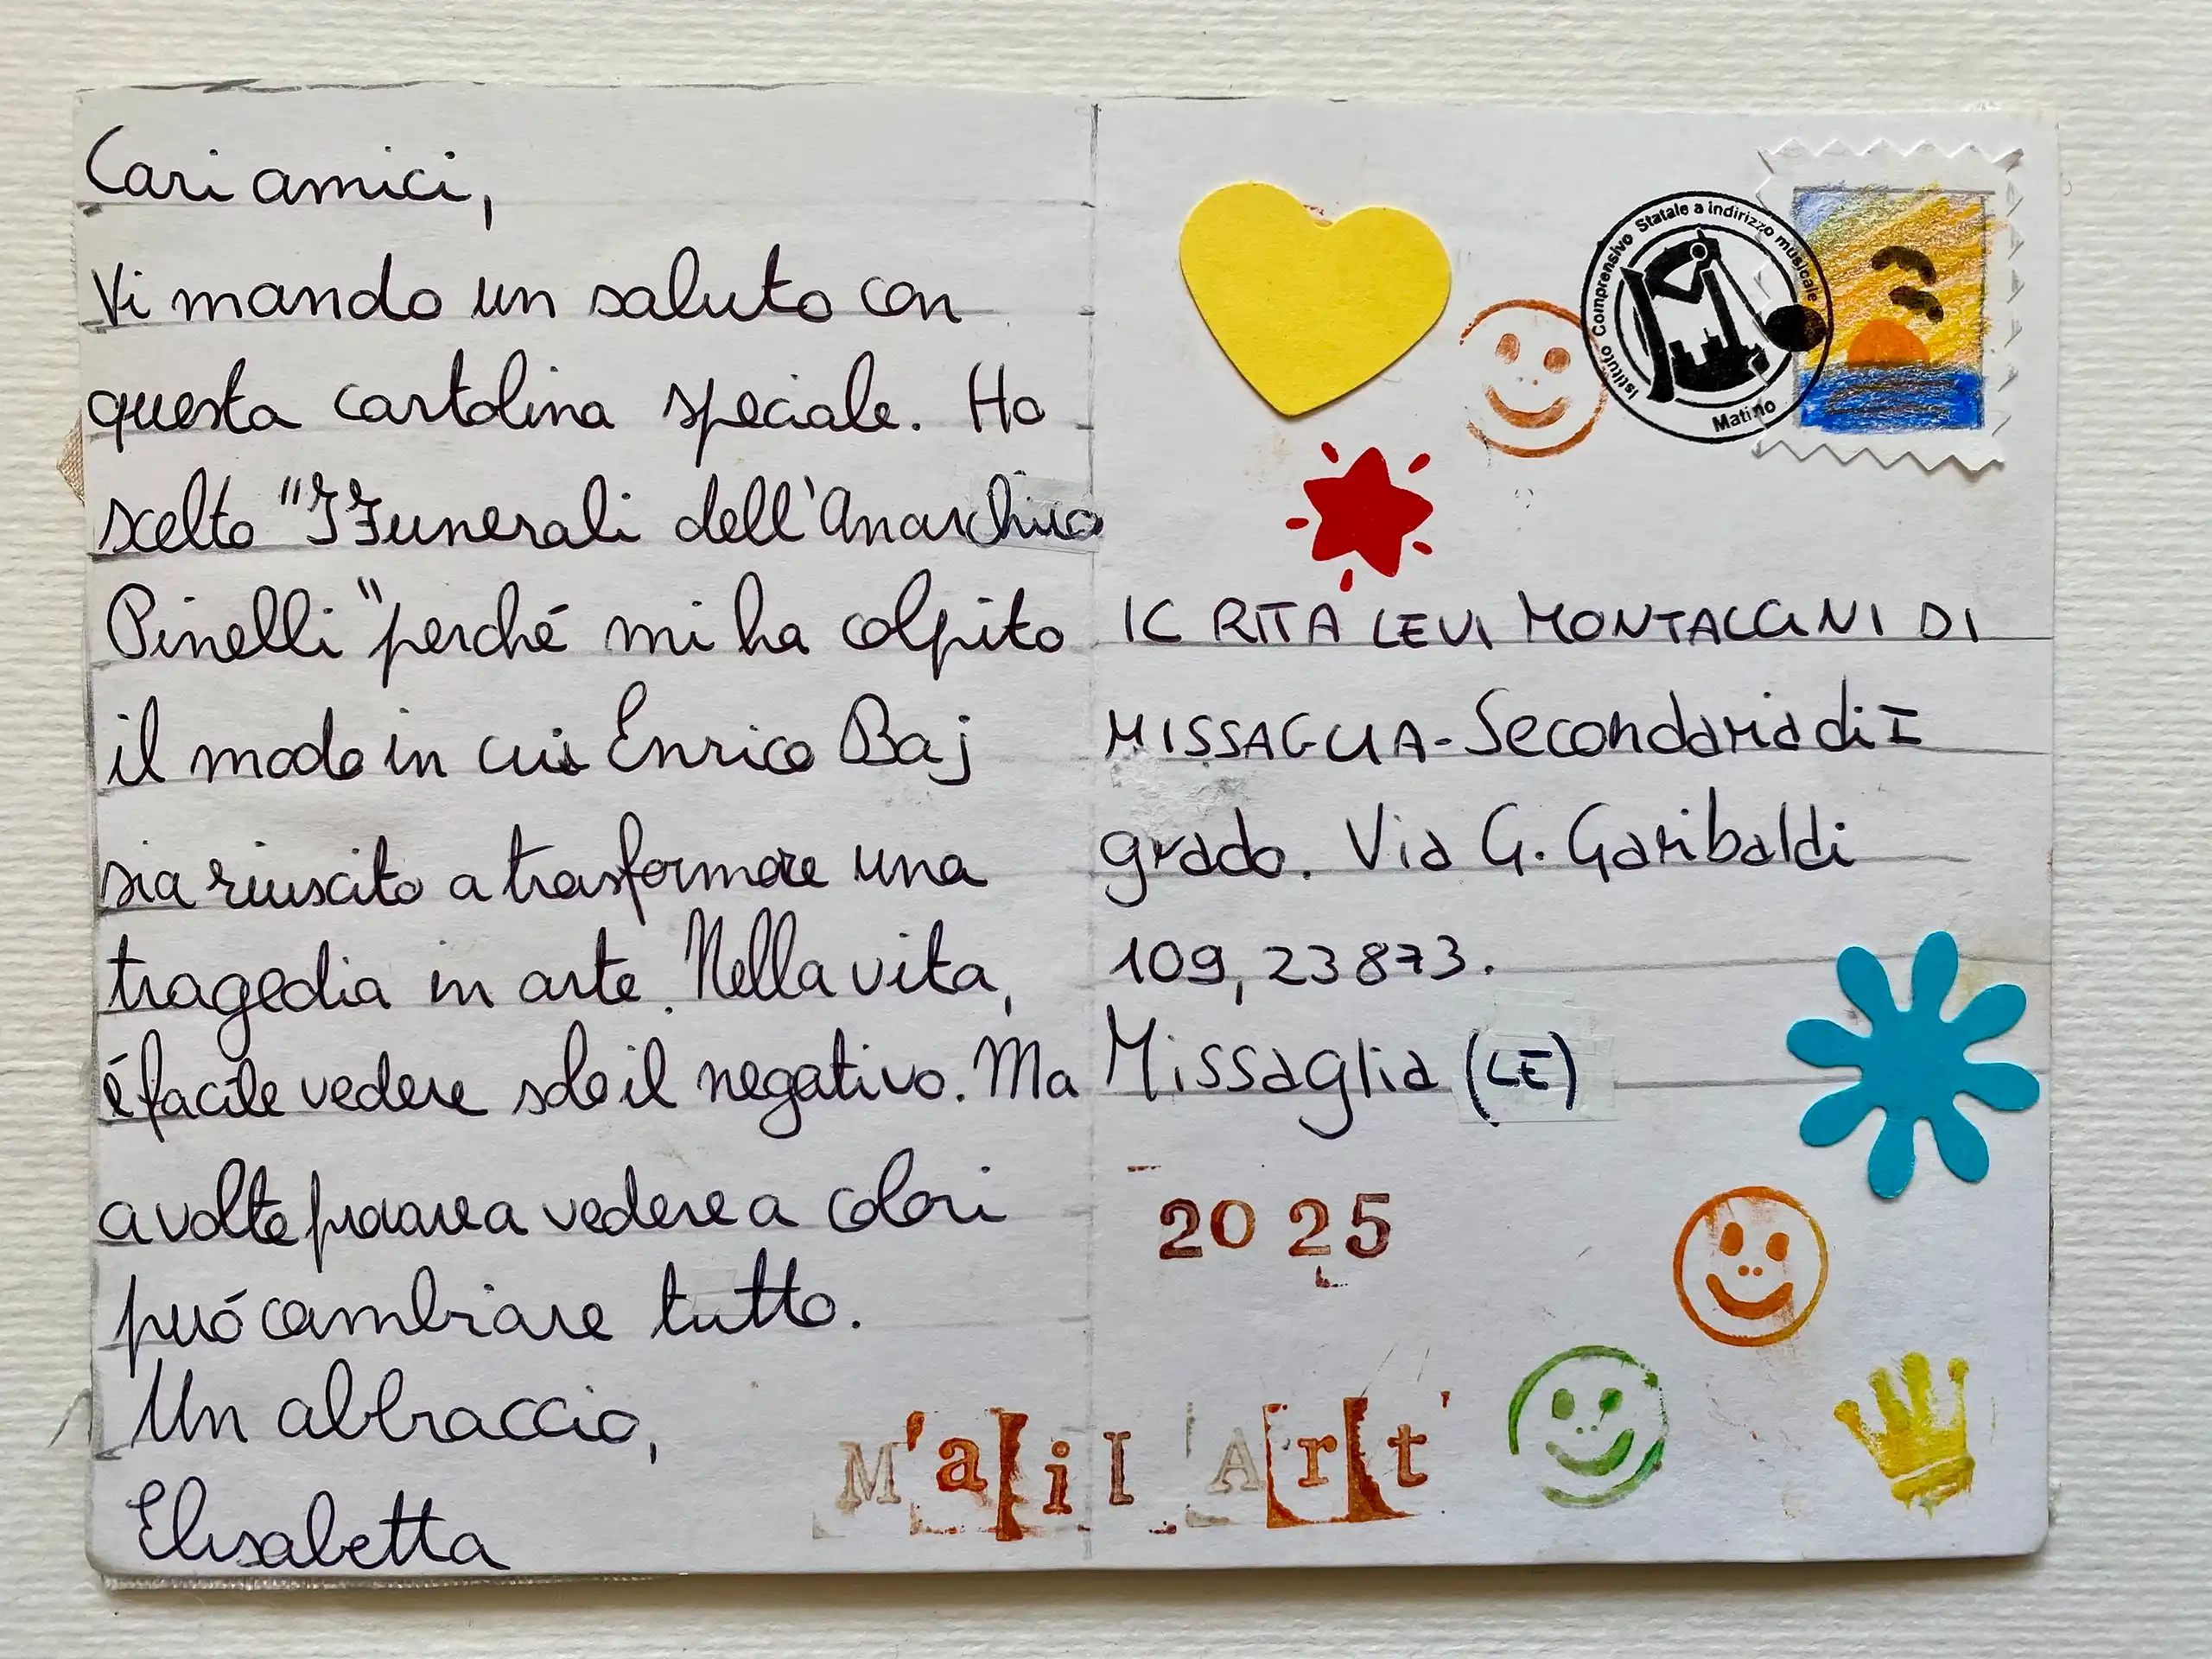 Cari amici,
Vi mando un saluto con
questa cartolina speciale. Ho
scelto "I Funerali dell'Anarchico
Pinelli" perché mi ha colpito
il modo in cui Enrico Baj
sia riuscito a trasformare una
tragedia in arte. Nella vita,
é facile vedere solo il negativo. Ma
a volte provare a vedere a colori
puó cambiare tutto.
Un abbraccio,
Elisabetta
Istituto Comprensivo Statale a indirizzo musicale
Matino
IC RITA LEVI MONTALCINI DI
MISSAGLIA - Secondaria di I
grado. Via G. Garibaldi
109, 23873.
Missaglia (LE)
2025
M'ail 'Art'